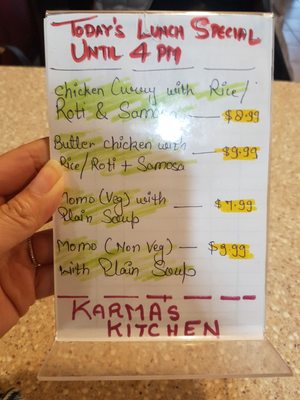 TODAY'S LUNCH SPECIAL
UNTIL 4 PM
Chicken Curry with Rice/
Roti & Samosa — $8.99
Butter chicken with — $9.99
Rice/Roti + Samosa
Momo (Veg) with — $7.99
Plain Soup
Momo (Non Veg) — $9.99
with Plain Soup
KARMA'S
KITCHEN